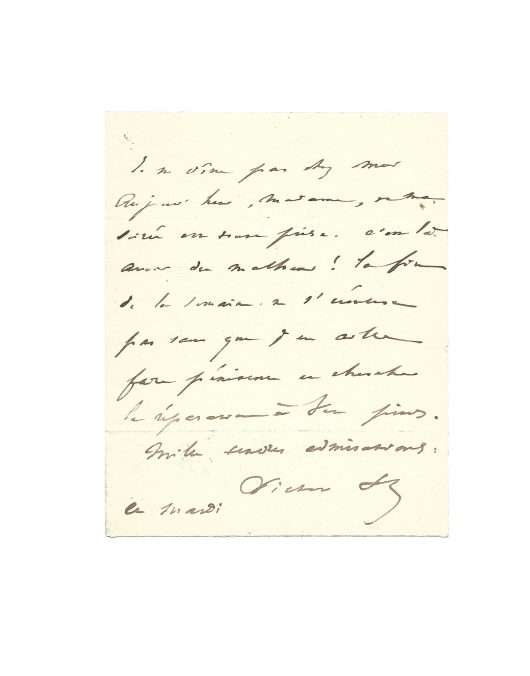 Je ne dîne pas chez moi
Aujourd'hui, Madame, et ma
soirée est prise. c'est là
avoir du malheur! la fin
de la semaine ne s'écoulera
pas sans que j'en aille
faire pénitence et chercher
la réparation à vos pieds.
Mille tendres admirations.
Victor
ce mardi